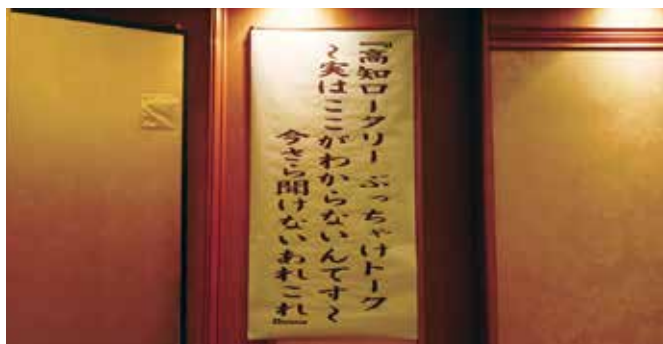 『高知ロータリー ぶっちゃけトーク
~実はここがわからないんです~
今さら聞けないあれこれ』